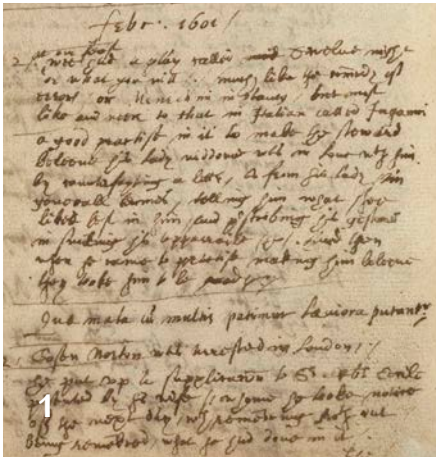 Febr. 1601
2 / At our feast
wee had a play called mid Twelve night
or what you will . much like the commedy of
errores or Menechmi in Plautus, but most
like and neere to that in Italian called Inganni
a good practise in it to make the steward
beleeve his lady widdowe was in love wth him
by counterfayting a letter, as from his lady in
generall termes, telling him what shee
liked best in him, and prescribing his gesture
in smiling his apparraile &c. And then
when he came to practise making him beleeve
they tooke him to be mad
Quae mala cū multis patimur laeviora putantr
Cosen Norton was arrested in London
He put up a supplication to Sr Rob Cecile
by his wife he tooke notice
of the next day, wth out
being remembred, what he had done in it
1